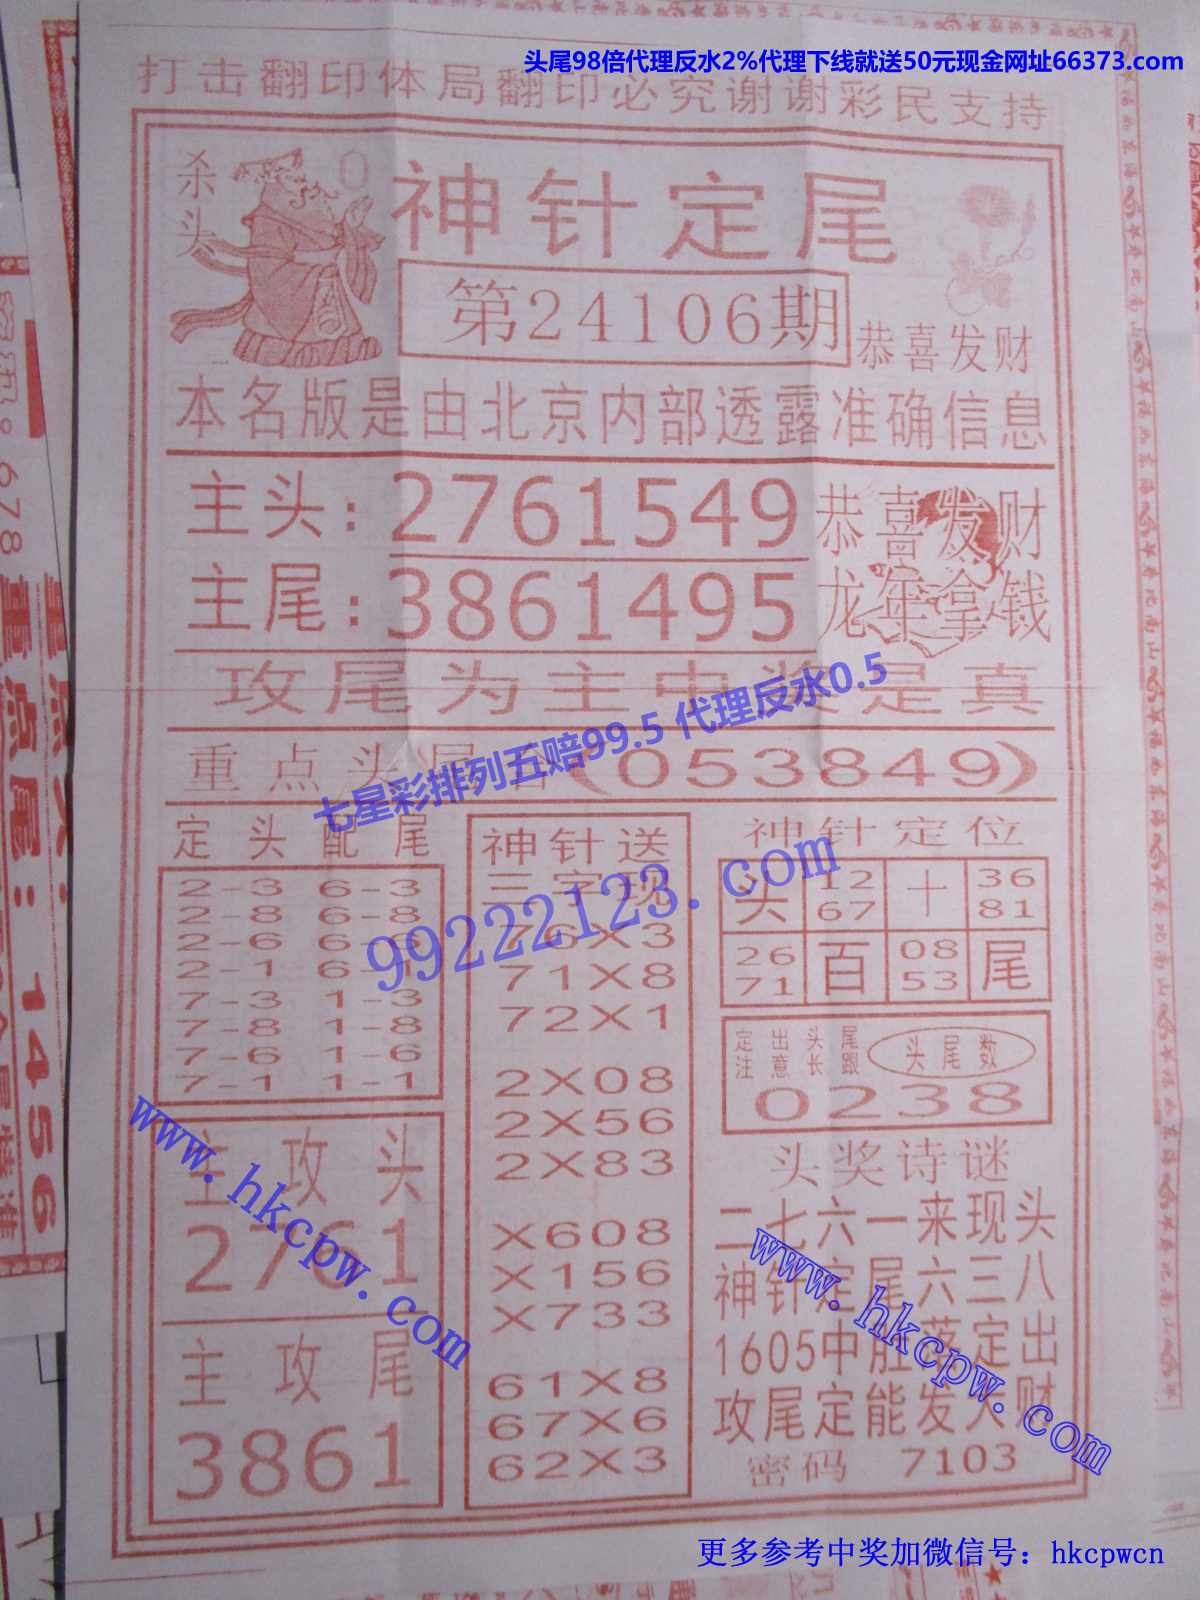 头尾98倍代理反水2%代理下线就送50元现金网址66373.com
打击翻印体局翻印必究谢谢彩民支持
杀头
0
神针定尾
第24106期
恭喜发财
本名版是由北京内部透露准确信息
主头:2761549
恭喜发财
主尾:3861495
龙年拿钱
攻尾为主中奖是真
七星彩排列五赔99.5 代理反水0.5
重点头尾合(053849)
定头配尾
2-3 6-3
2-8 6-8
2-6 6-6
2-1 6-1
7-3 1-3
7-8 1-8
7-6 1-6
7-1 1-1
99222123.com
神针送
三字现
76X3
71X8
72X1
2X08
2X56
2X83
X608
X156
X733
61X8
67X6
62X3
神针定位
头 12 十 36
67 81
26 百 08 尾
71 53
定出头尾
注意长跟
头尾数
0238
主攻头
2761
主攻尾
3861
www.hkcpw.com
头奖诗谜
二七六一来现头
神针定尾六三八
1605中胜落定出
攻尾定能发大财
密码 7103
www.hkcpw.com
更多参考中奖加微信号：hkcpwcn
678
重点尾：1456